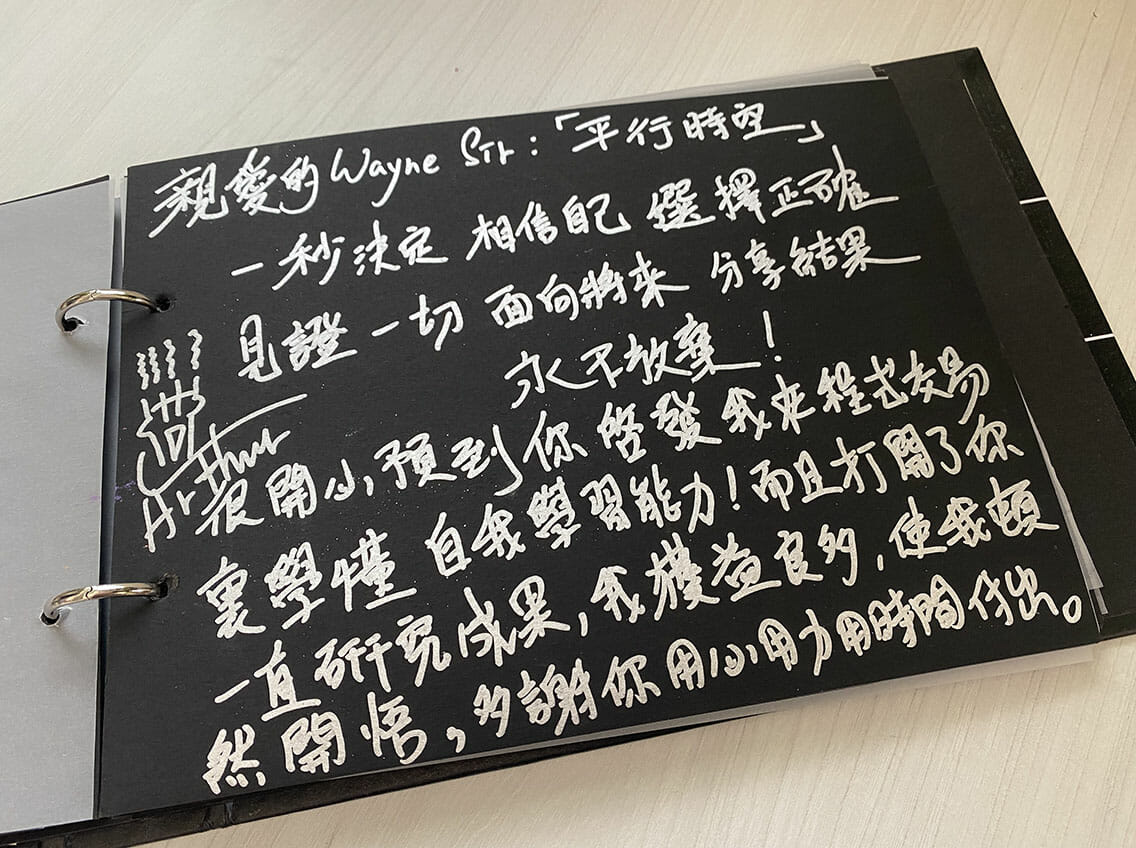 親愛的 Wayne Sir:「平行時空」
一秒決定 相信自己 選擇正確
見證一切 面向將來 分享結果
永不放棄!
很開心預到你啓發我来程式交易
裏學懂 自我學習能力!而且打開了你
一直研究成果,我獲益良多,使我頓
然開悟,多謝你用心用力用時間付出。
Arthur